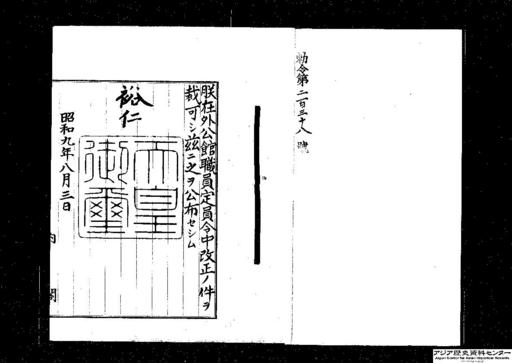 勅令第二百三十八號
朕在外公館職員定員令中改正ノ件ヲ
裁可シ茲ニ之ヲ公布セシム
裕仁
天皇御璽
昭和九年八月三日
内閣
アジア歴史資料センター
Japan Center for Asian Historical Records